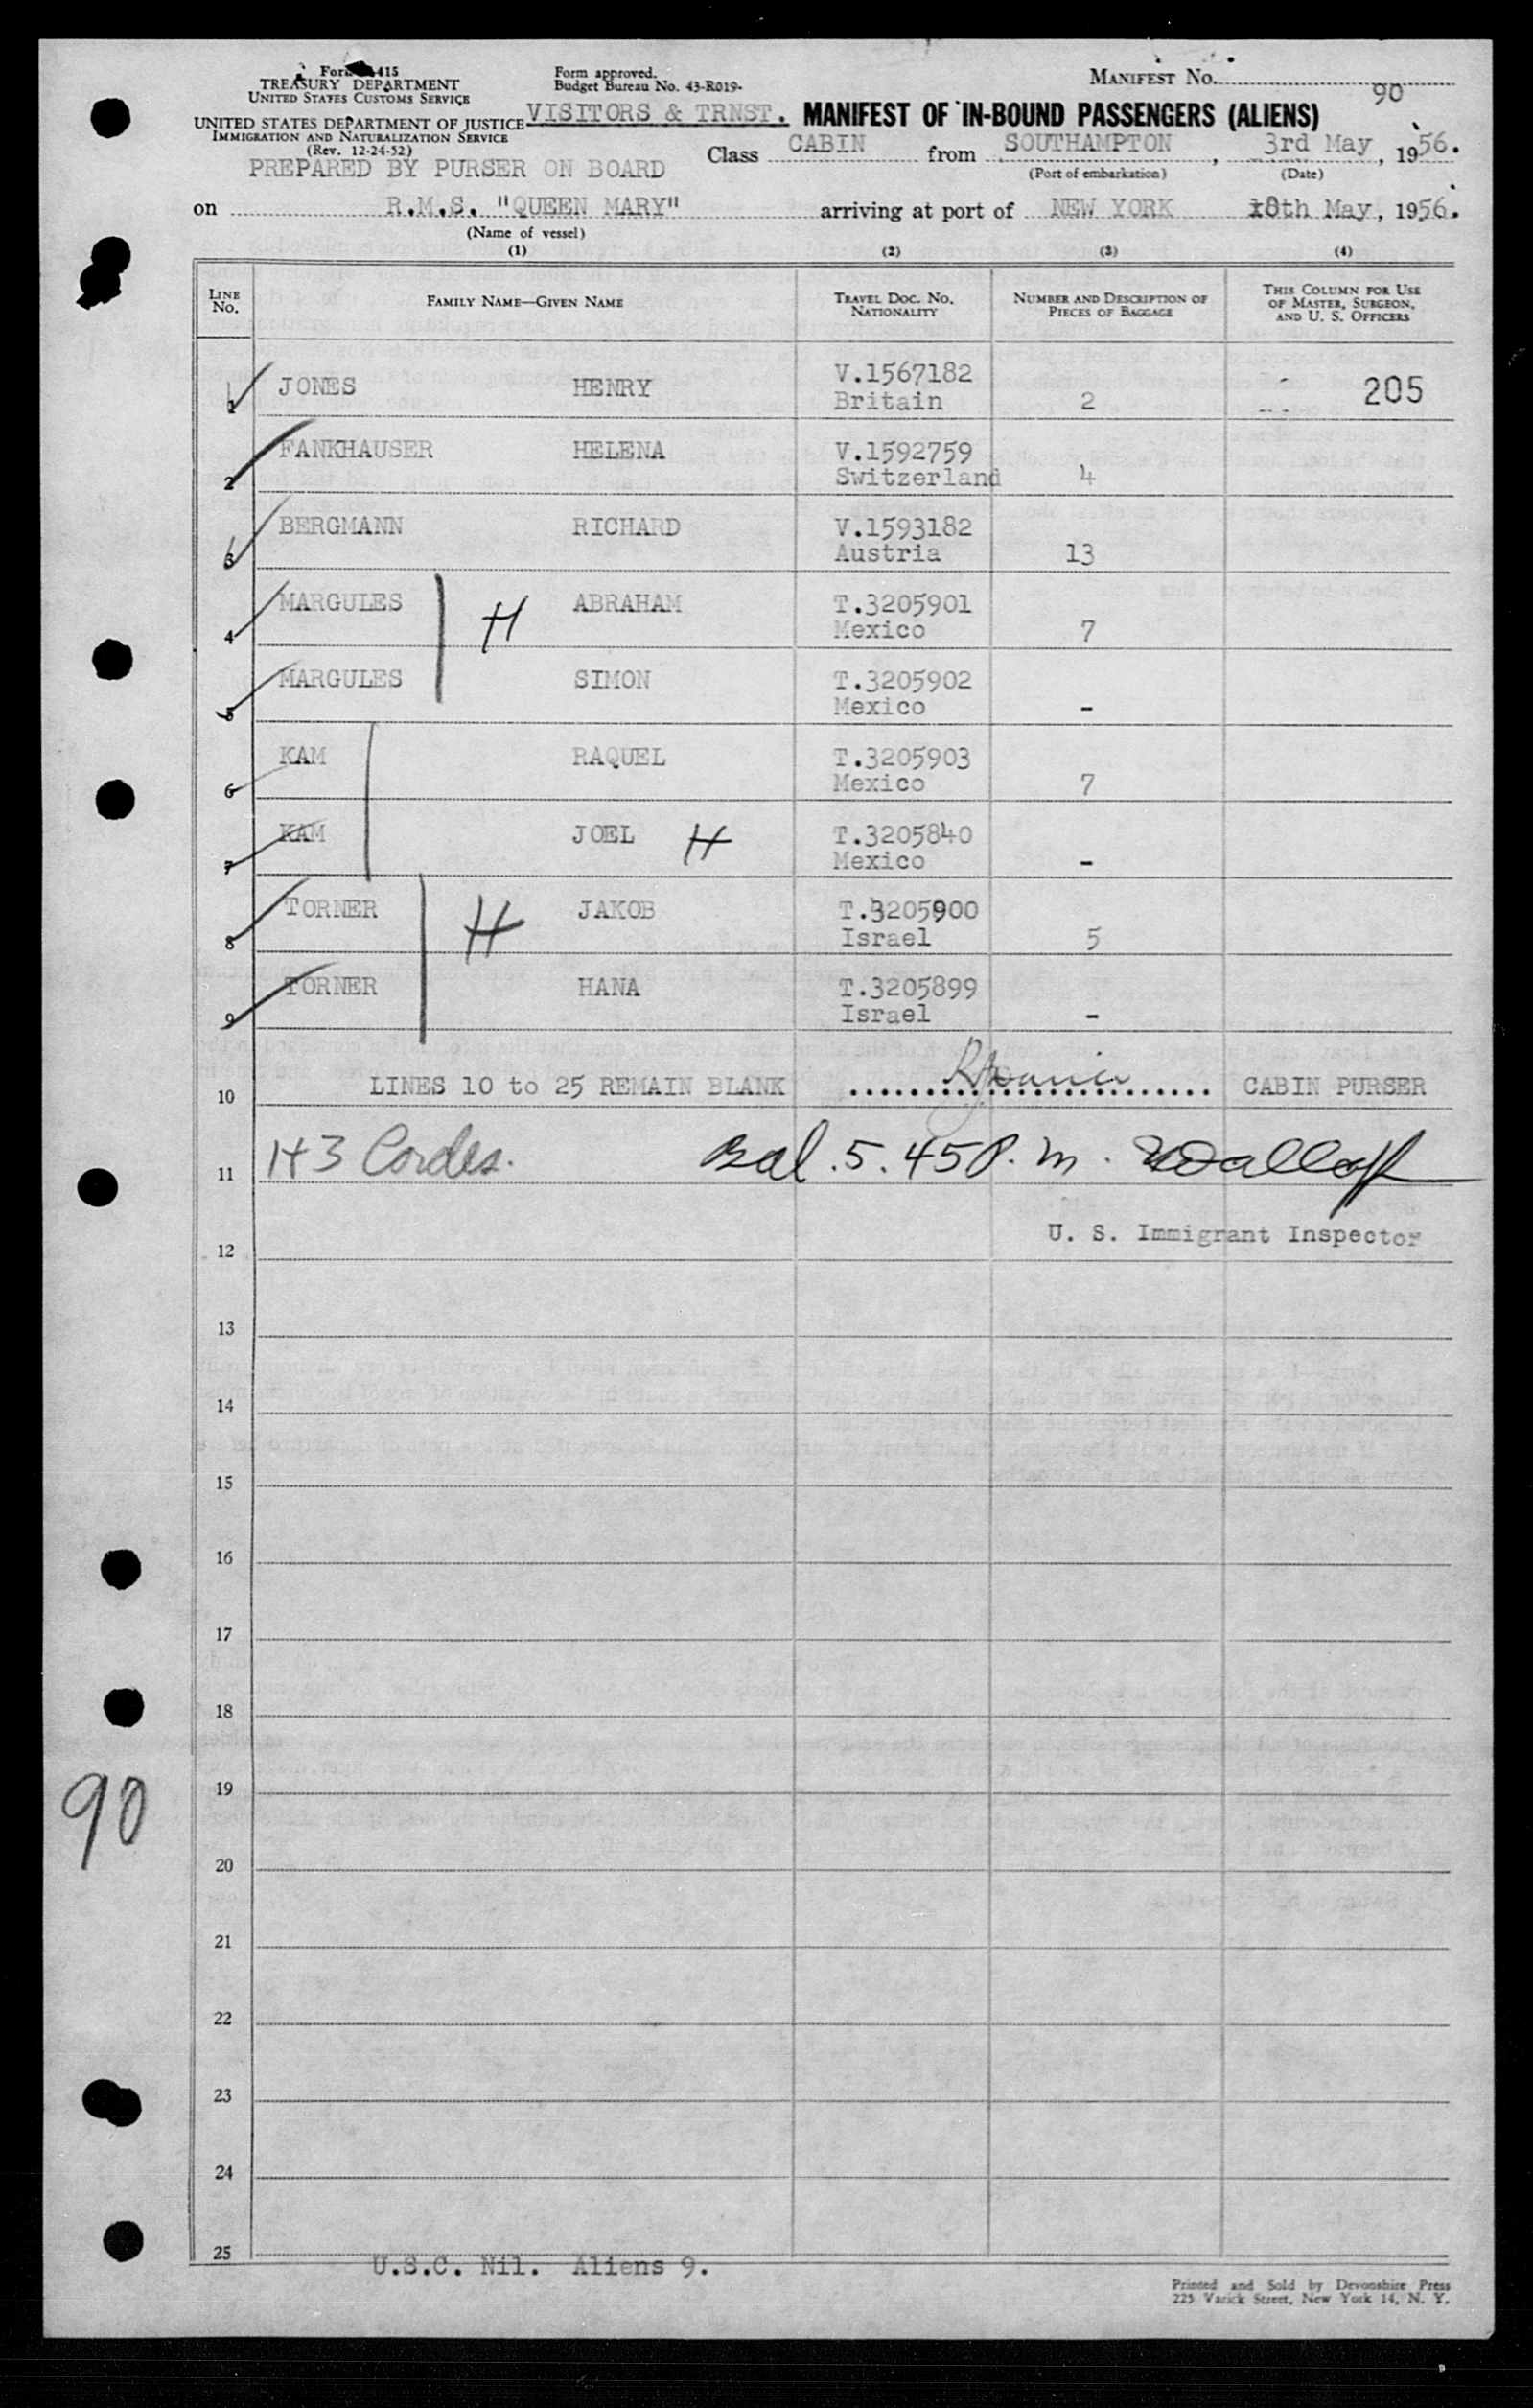 Form 415
TREASURY DEPARTMENT
UNITED STATES CUSTOMS SERVICE
UNITED STATES DEPARTMENT OF JUSTICE
IMMIGRATION AND NATURALIZATION SERVICE
(Rev. 12-24-52)
Form approved.
Budget Bureau No. 43-R019-
MANIFEST No. 90
VISITORS & TRNST. MANIFEST OF IN-BOUND PASSENGERS (ALIENS)
PREPARED BY PURSER ON BOARD
Class CABIN from SOUTHAMPTON, 3rd May, 1956.
(Port of embarkation) (Date)
on R.M.S. "QUEEN MARY" arriving at port of NEW YORK 8th May, 1956.
(Name of vessel)
(1) (2) (3) (4)
LINE No. FAMILY NAME—GIVEN NAME TRAVEL DOC. NO. NATIONALITY NUMBER AND DESCRIPTION OF PIECES OF BAGGAGE THIS COLUMN FOR USE OF MASTER, SURGEON, AND U. S. OFFICERS
1 JONES HENRY V.1567182 Britain 2 205
2 FANKHAUSER HELENA V.1592759 Switzerland 4
3 BERGMANN RICHARD V.1593182 Austria 13
4 MARGULES H ABRAHAM T.3205901 Mexico 7
5 MARGULES SIMON T.3205902 Mexico -
6 KAM RAQUEL T.3205903 Mexico 7
7 KAM JOEL H T.3205840 Mexico -
8 TORNER H JAKOB T.3205900 Israel 5
9 TORNER HANA T.3205899 Israel -
10 LINES 10 to 25 REMAIN BLANK CABIN PURSER
11 H3 Cordes. Bal. 5.45 P.m.
12 U. S. Immigrant Inspector
13
14
15
16
17
18
19
90
20
21
22
23
24
25
U.S.C. Nil. Aliens 9.
Printed and Sold by Devonshire Press
225 Varick Street, New York 14, N. Y.